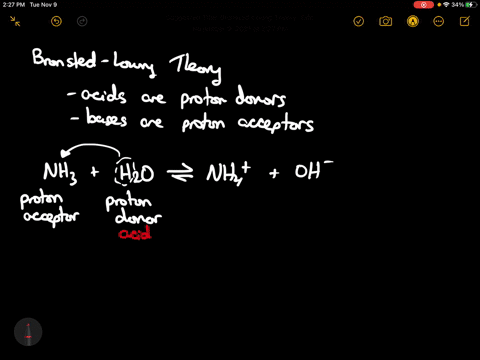 2:27 PM Tue Nov 9
34%
Bronsted-Lowry Theory
- acids are proton donors
- bases are proton acceptors
NH3 + H2O ⇌ NH4+ + OH-
proton acceptor
proton donor
acid